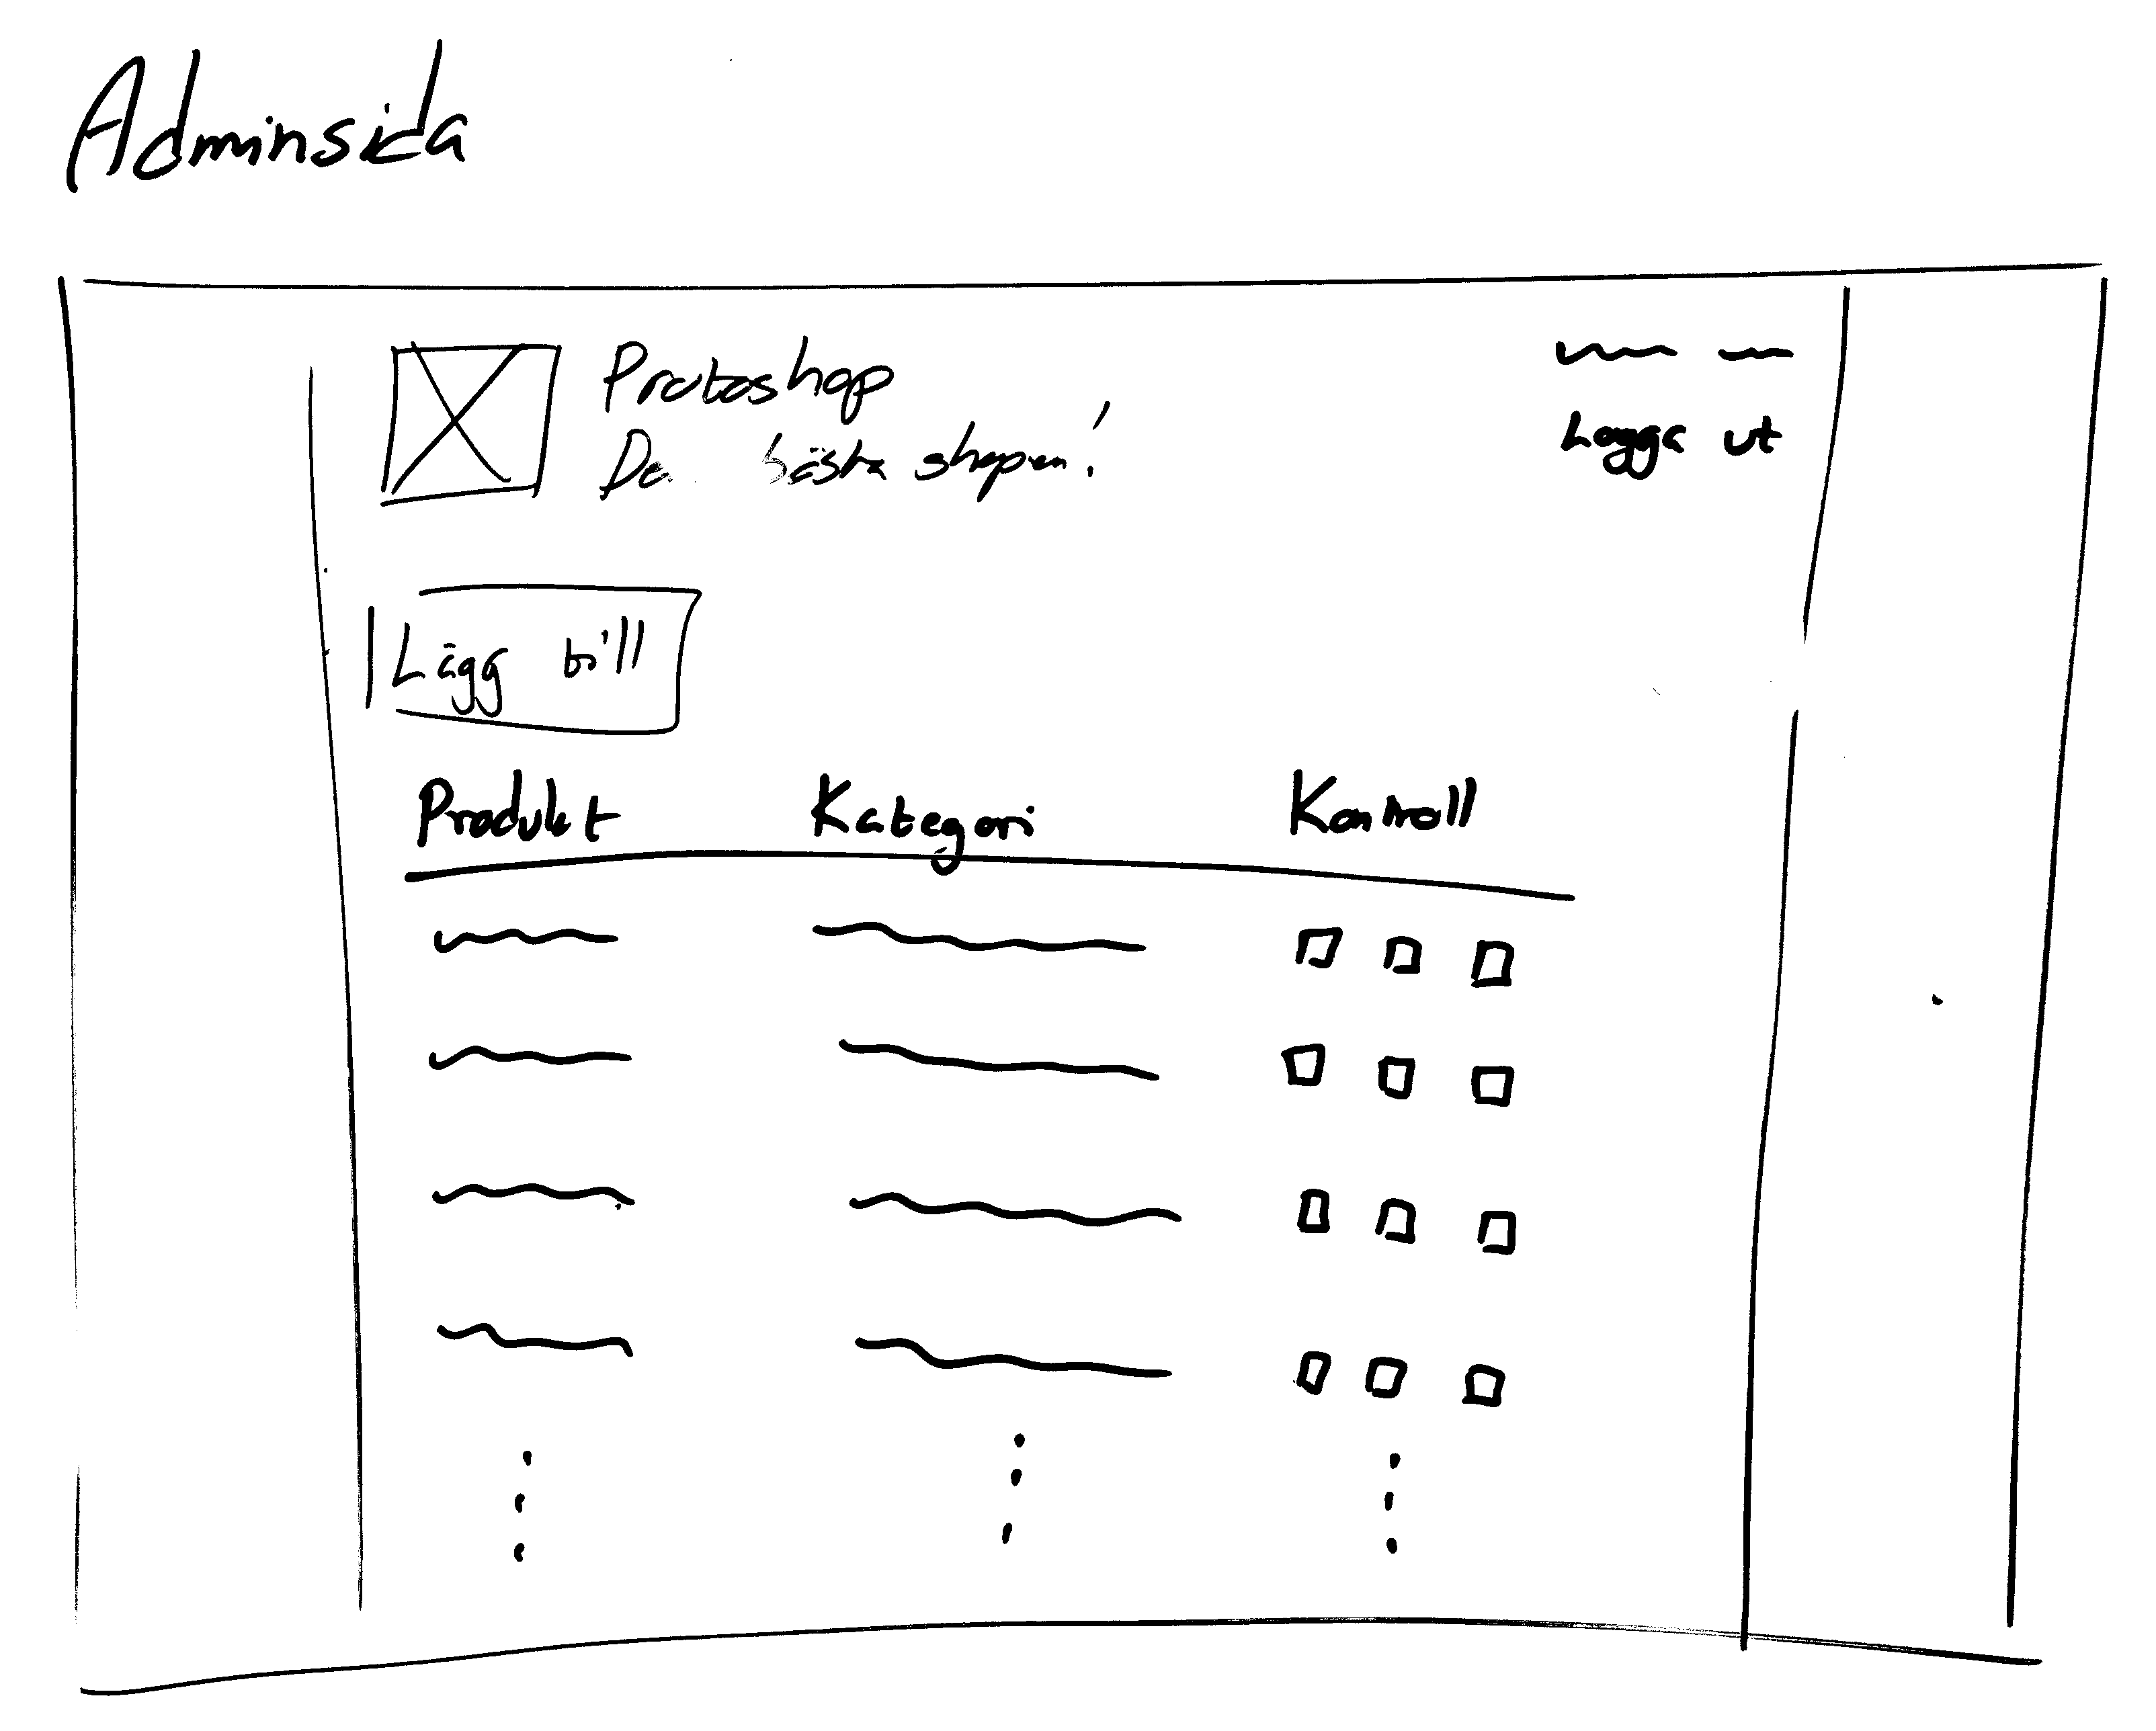 Adminsida
Protoshop
De bästa shopen!
Logga ut
Lägg till
Produkt Kategori Kontroll